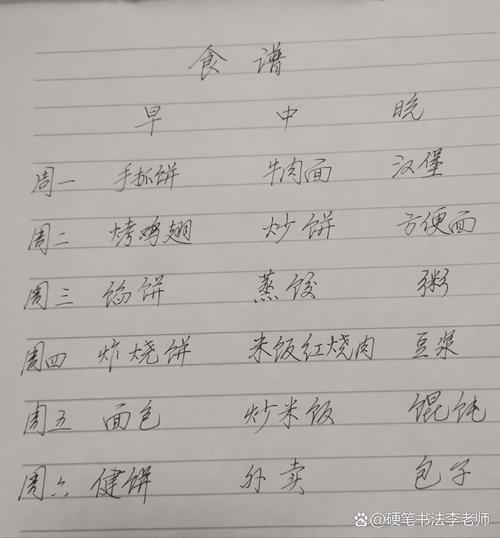 食谱
早 中 晥
周一 手抓饼 牛肉面 汉堡
周二 烤鸡翅 炒饼 方便面
周三 馅饼 蒸饺 粥
周四 炸烧饼 米饭红烧肉 豆浆
周五 面包 炒米饭 馄饨
周六 健饼 外卖 包子
@硬笔书法李老师